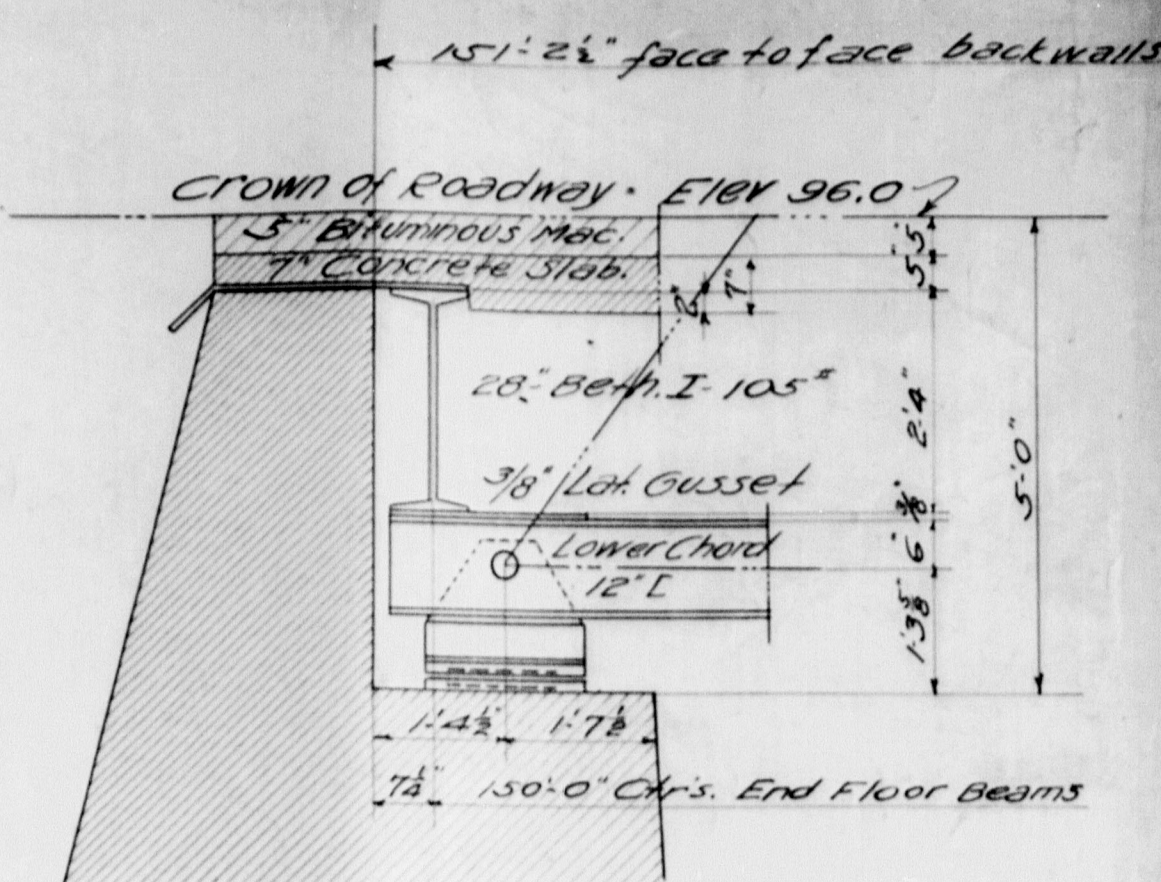 151'-2½" face to face backwalls
Crown of Roadway. Elev 96.0
5" Bituminous Mac.
7" Concrete Slab.
5"
5"
2"
7"
28" Beth. I-105#
2'4"
5'-0"
3/8" Lat. Gusset
3/8"
6"
Lower Chord
12" [
1'-3⅝"
1'-4½"
1'-7½"
7¼"
150'-0" Ctrs. End Floor Beams